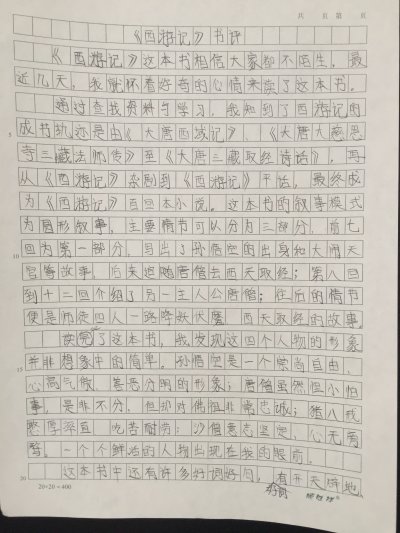 共 页 第 页
《西游记》书评
《西游记》这本书相信大家都不陌生。最
近几天，我就怀着好奇的心情来读了这本书。
通过查找资料与学习，我知到了西游记的
成书轨迹是由《大唐西域记》、《大唐大慈恩
寺三藏法师传》至《大唐三藏取经诗话》，再
从《西游记》杂剧到《西游记》平话，最终成
为《西游记》百回本小说。这本书的叙事模式
为圆形叙事，主要情节可以分为三部分，前七
回为第一部分，写出了孙悟空的出身和大闹天
宫等故事，后来跟随唐僧去西天取经；第八回
到十二回介绍了另一主人公唐僧；往后的情节
便是师徒四人一路降妖伏魔，西天取经的故事。
读完了这本书，我发现这四个人物的形象
并非想象中的简单。孙悟空是一个崇尚自由、
心高气傲、善恶分明的形象；唐僧虽然胆小怕
事，是非不分，但却对佛祖非常忠诚；猪八戒
憨厚淳直，吃苦耐劳；沙僧意志坚定，心无旁
骛。一个个鲜活的人物出现在我的眼前。
这本书中还有许多好词好句，有开天辟地、
5
10
15
20
20×20=400